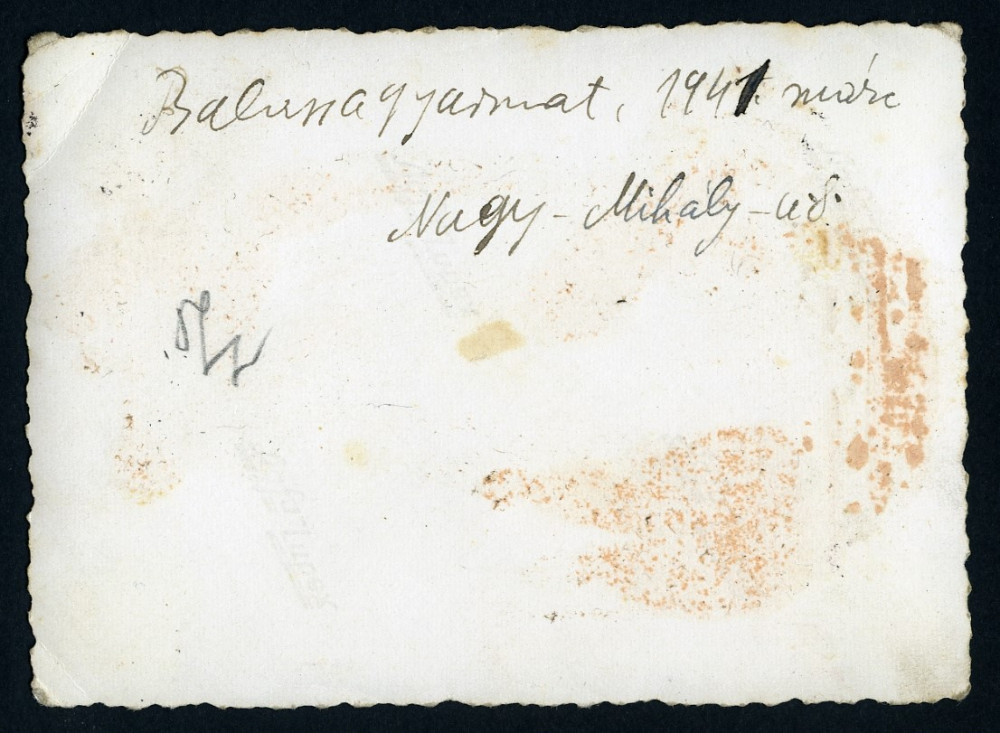 Balassagyarmat, 1941. márc
Nagy-Mihály-ud.